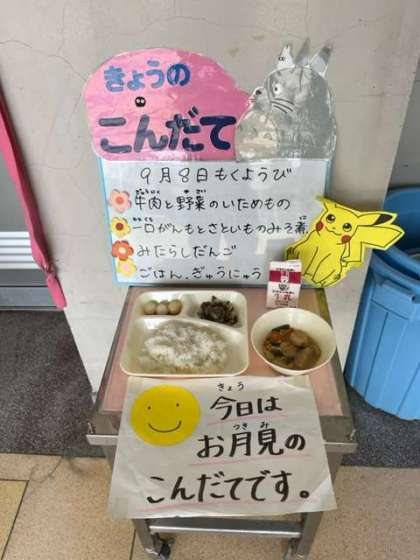 きょうの
こんだて
9月8日もくようび
ぎゅうにく や さい
牛肉と野菜のいためもの
ひとくち に
一口がんもとさといものみそ煮
みたらしだんご
ごはん、ぎゅうにゅう
牛乳
きょう
今日は
つき み
お月見の
こんだてです。